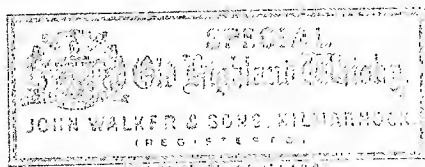 SPECIAL
Old Highland Whisky.
JOHN WALKER & SONS, KILMARNOCK.
(REGISTERED)